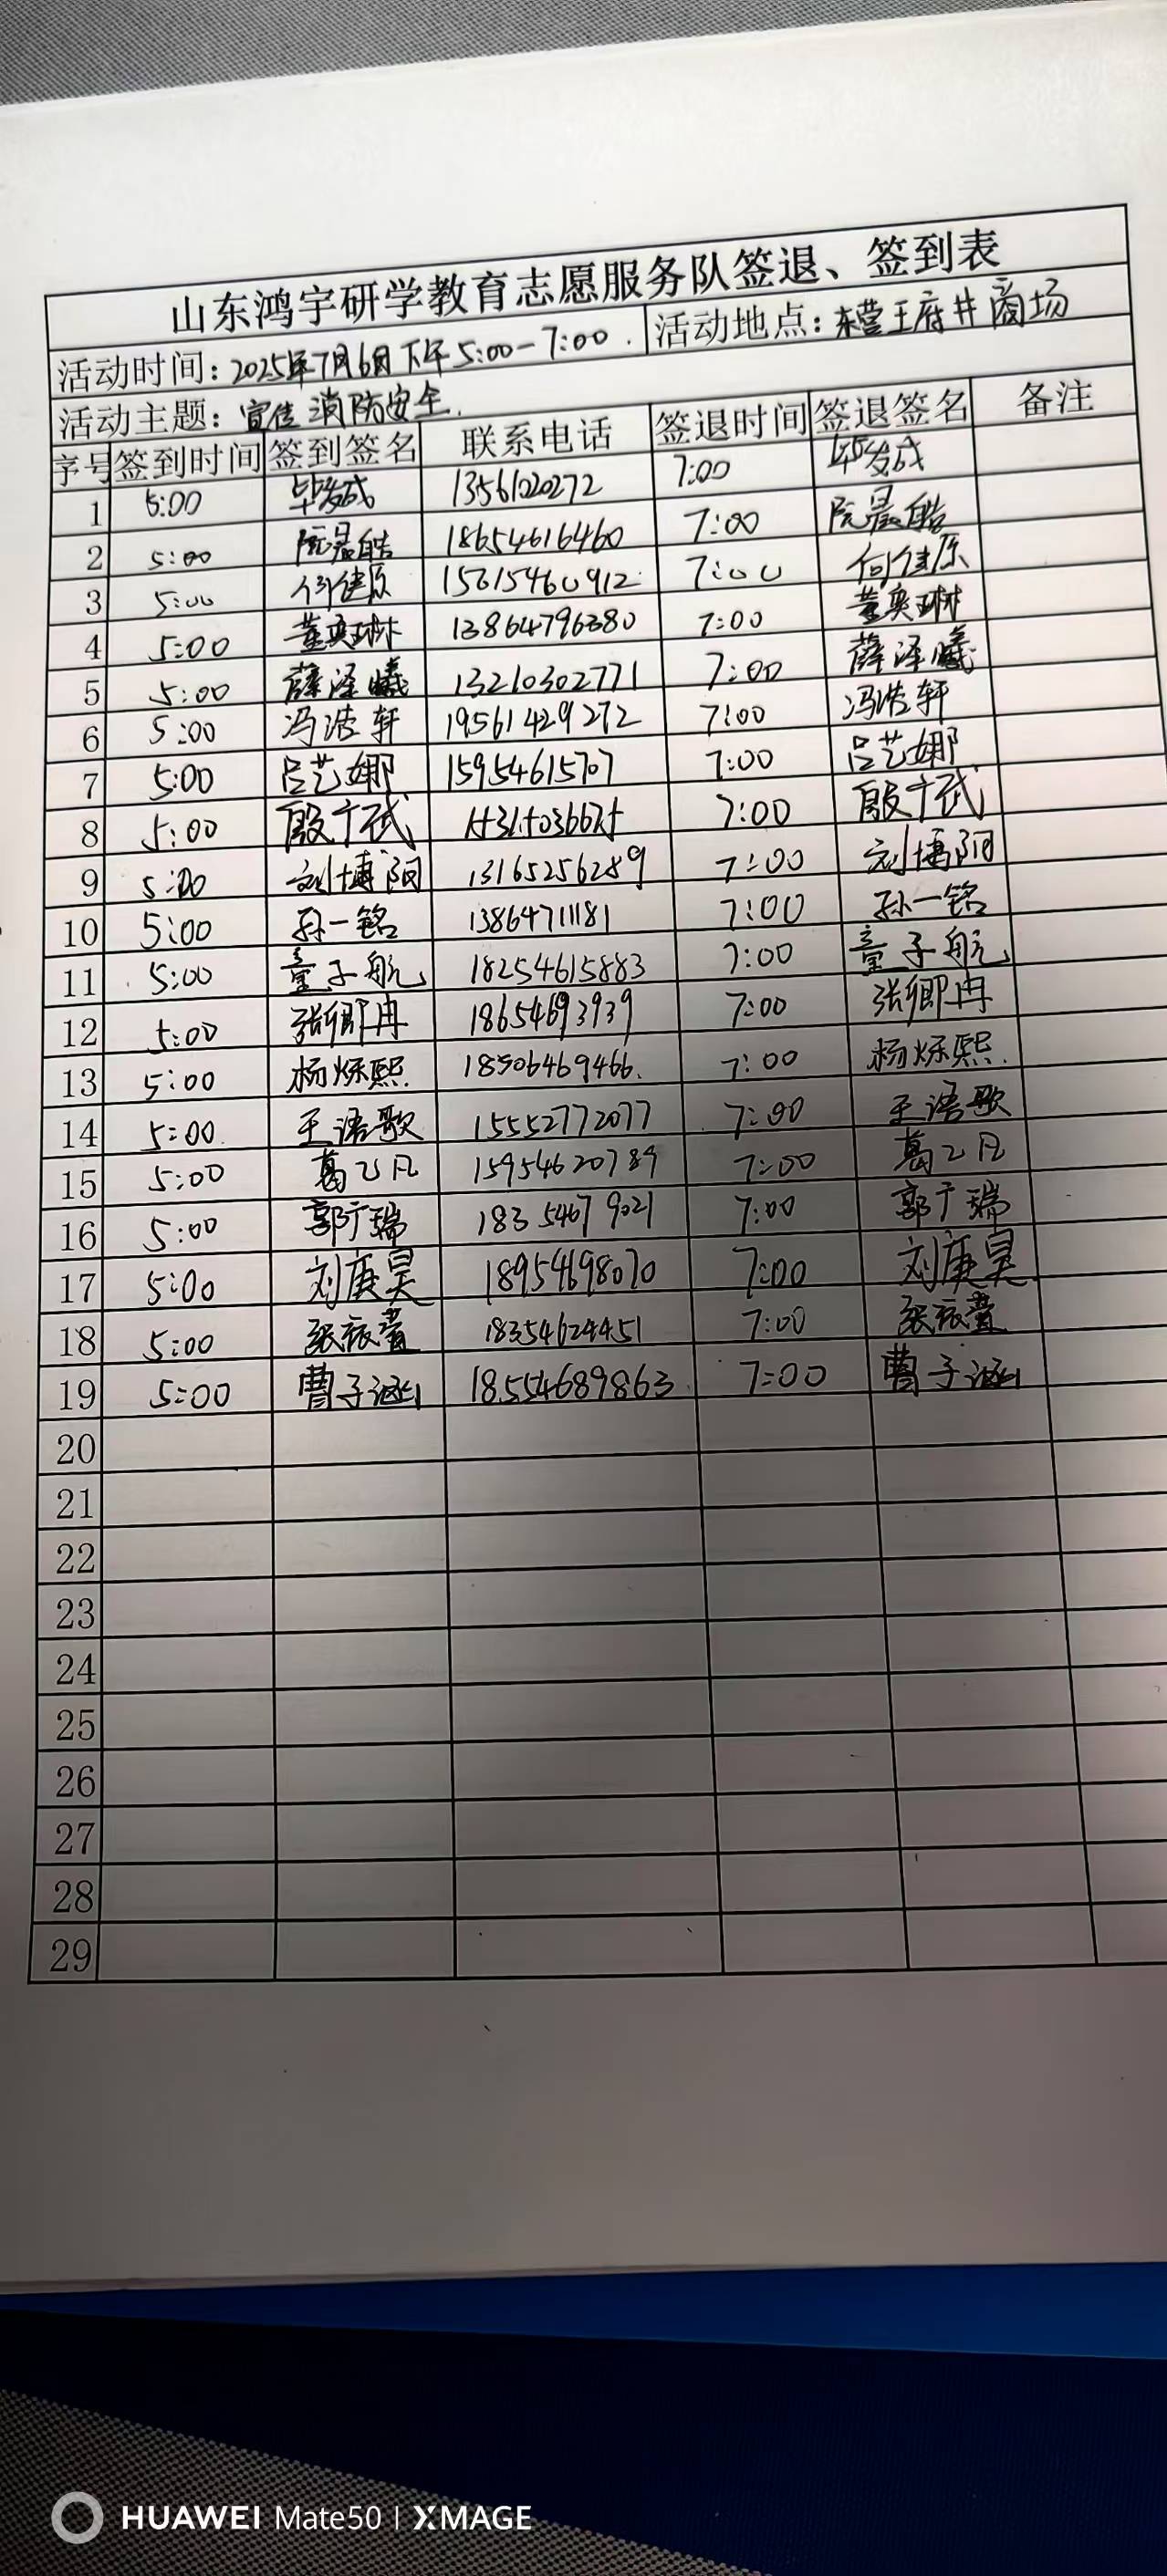 山东鸿宇研学教育志愿服务队签退、签到表
活动时间：2025年7月6日下午5:00-7:00. 活动地点：东营王府井商场
活动主题：宣传消防安全.
序号 签到时间 签到签名 联系电话 签退时间 签退签名 备注
1 5:00 毕发成 13561020272 7:00 毕发成
2 5:00 阮晨皓 18654616460 7:00 阮晨皓
3 5:00 何健原 15615460912 7:00 何健原
4 5:00 董奕琳 13864796380 7:00 董奕琳
5 5:00 薛泽曦 13210302771 7:00 薛泽曦
6 5:00 冯浩轩 19561429272 7:00 冯浩轩
7 5:00 吕艺娜 15954615707 7:00 吕艺娜
8 5:00 殷千忒 7:00 殷千忒
9 5:00 刘博阳 13165256289 7:00 刘博阳
10 5:00 孙一铭 13864711181 7:00 孙一铭
11 5:00 童子航 18254615883 7:00 童子航
12 5:00 张卿冉 18654693939 7:00 张卿冉
13 5:00 杨烁熙 18506469466. 7:00 杨烁熙.
14 5:00 王语歌 15552772077 7:00 王语歌
15 5:00 葛乙凡 15954620789 7:00 葛乙凡
16 5:00 郭于瑞 1835467 9021 7:00 郭于瑞
17 5:00 刘庚昊 18954698070 7:00 刘庚昊
18 5:00 18354624451 7:00
19 5:00 曹子涵 18554689863 7:00 曹子涵
20
21
22
23
24
25
26
27
28
29
HUAWEI Mate50 | XMAGE